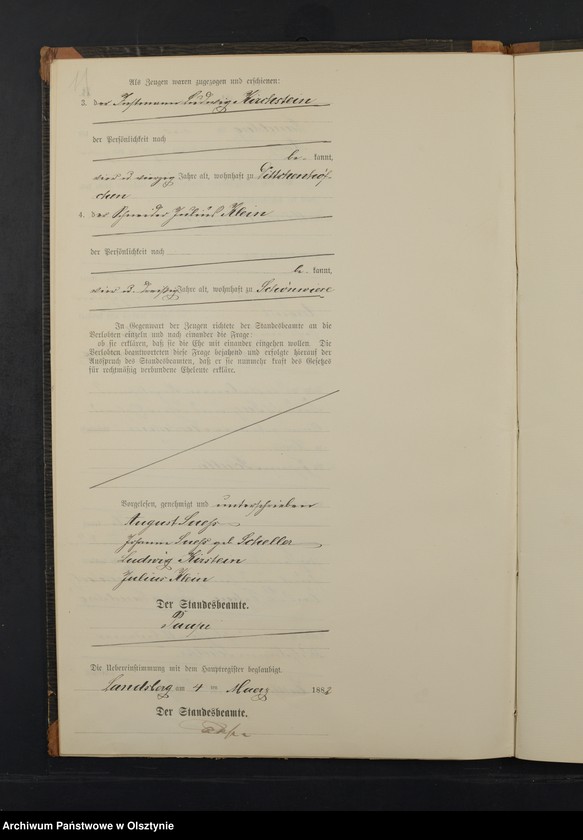 Als Zeugen waren zugezogen und erschienen:
3. der Instmann Ludwig Kirchstein
der Persönlichkeit nach
be- kannt,
vier u vierzig Jahre alt, wohnhaft zu
chen
4. der Schneider Julius Klein
der Persönlichkeit nach
be- kannt,
vier u. dreißig Jahre alt, wohnhaft zu Schönwiese
In Gegenwart der Zeugen richtete der Standesbeamte an die
Verlobten einzeln und nach einander die Frage:
ob sie erklären, daß sie die Ehe mit einander eingehen wollen. Die
Verlobten beantworteten diese Frage bejahend und erfolgte hierauf der
Ausspruch des Standesbeamten, daß er sie nunmehr kraft des Gesetzes
für rechtmäßig verbundene Eheleute erkläre.
Vorgelesen, genehmigt und unterschrieben
August
Johanna geb Scheller
Ludwig Kirstein
Julius Klein
Der Standesbeamte.
Die Uebereinstimmung mit dem Hauptregister beglaubigt.
Landsberg am 4 ten Maerz 1882
Der Standesbeamte.
Archiwum Państwowe w Olsztynie